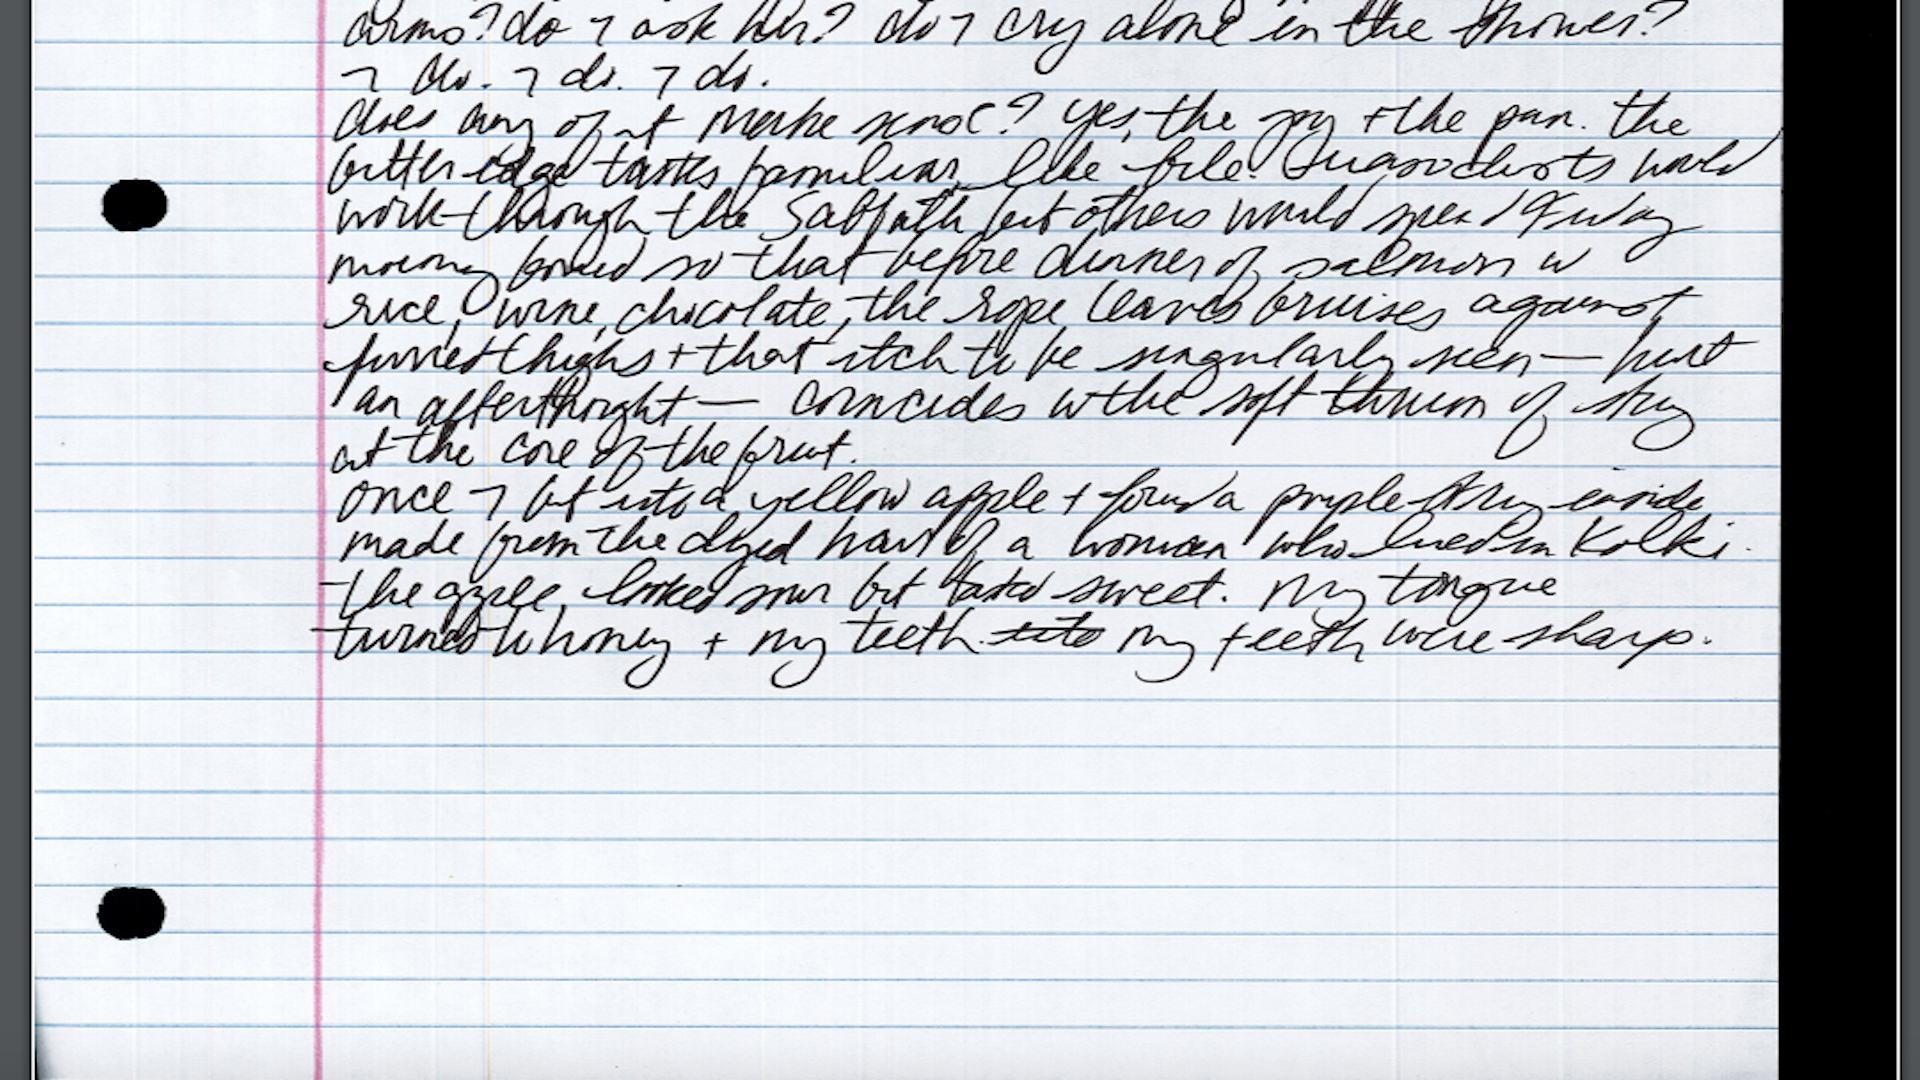 arms? do I ask her? do I cry alone in the shower?
I do. I do. I do.
does any of it make sense? yes, the joy + the pain. the
bitter edge tastes familiar, like bile. would
work through the Sabbath but others would spend Friday
morning bound so that before dinner of salmon w
rice, wine, chocolate, the rope leaves bruises against
furred thighs + that itch to be singularly seen — hurt
an afterthought — coincides w the soft thrum of string
at the core of the fruit.
once I bit into a yellow apple + found a purple string inside
made from the dyed hair of a woman who lived in Kolki.
the apple looked sour but tasted sweet. my tongue
turned to honey + my teeth. my teeth were sharp.